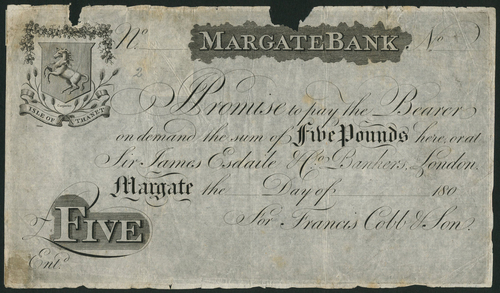 No MARGATE BANK No
ISLE OF THANET
2
I Promise to pay the Bearer
on demand the sum of Five Pounds here, or at
Sir James Esdaile & Co. Bankers, London.
Margate the Day of 180
For Francis Cobb & Son.
£ FIVE
Entd.